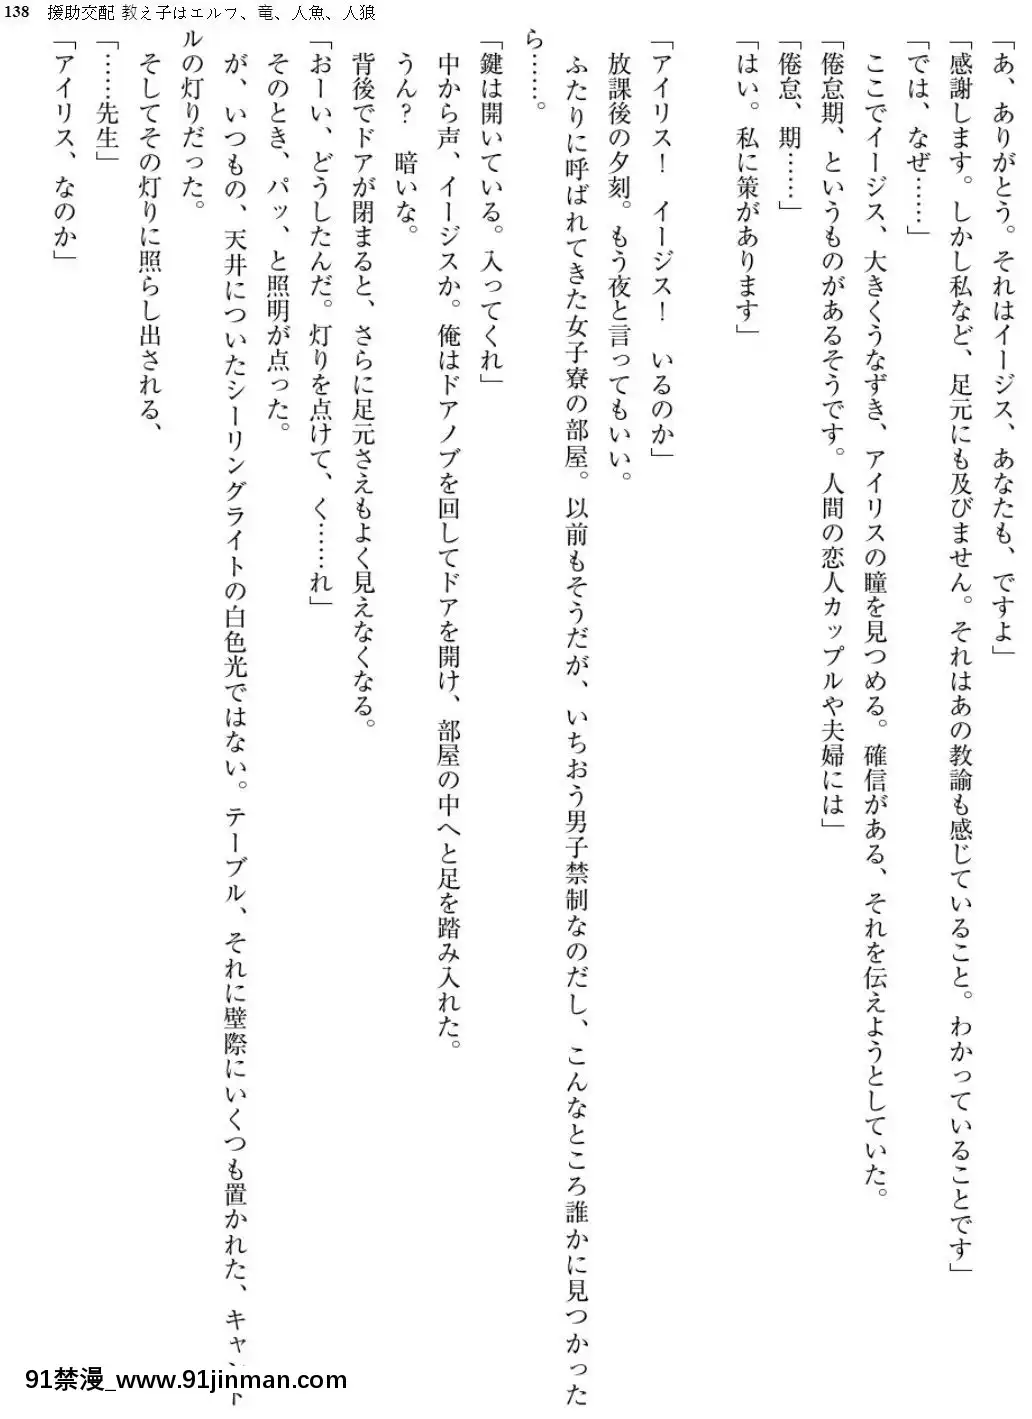 138 援助交配 教え子はエルフ、竜、人魚、人狼
「あ、ありがとう。それはイージス、あなたも、ですよ」
「感謝します。しかし私など、足元にも及びません。それはあの教諭も感じていること。わかっていることです」
「では、なぜ……」
ここでイージス、大きくうなずき、アイリスの瞳を見つめる。確信がある、それを伝えようとしていた。
「倦怠期、というものがあるそうです。人間の恋人カップルや夫婦には」
「倦怠、期……」
「はい。私に策があります」
「アイリス！　イージス！　いるのか」
放課後の夕刻。もう夜と言ってもいい。
ふたりに呼ばれてきた女子寮の部屋。以前もそうだが、いちおう男子禁制なのだし、こんなところ誰かに見つかった
ら……。
「鍵は開いている。入ってくれ」
中から声、イージスか。俺はドアノブを回してドアを開け、部屋の中へと足を踏み入れた。
うん？　暗いな。
背後でドアが閉まると、さらに足元さえもよく見えなくなる。
「おーい、どうしたんだ。灯りを点けて、く……れ」
そのとき、パッ、と照明が点った。
が、いつもの、天井についたシーリングライトの白色光ではない。テーブル、それに壁際にいくつも置かれた、キャンド
ルの灯りだった。
そしてその灯りに照らし出される、
「……先生」
「アイリス、なのか」
91禁漫_www.91jinman.com